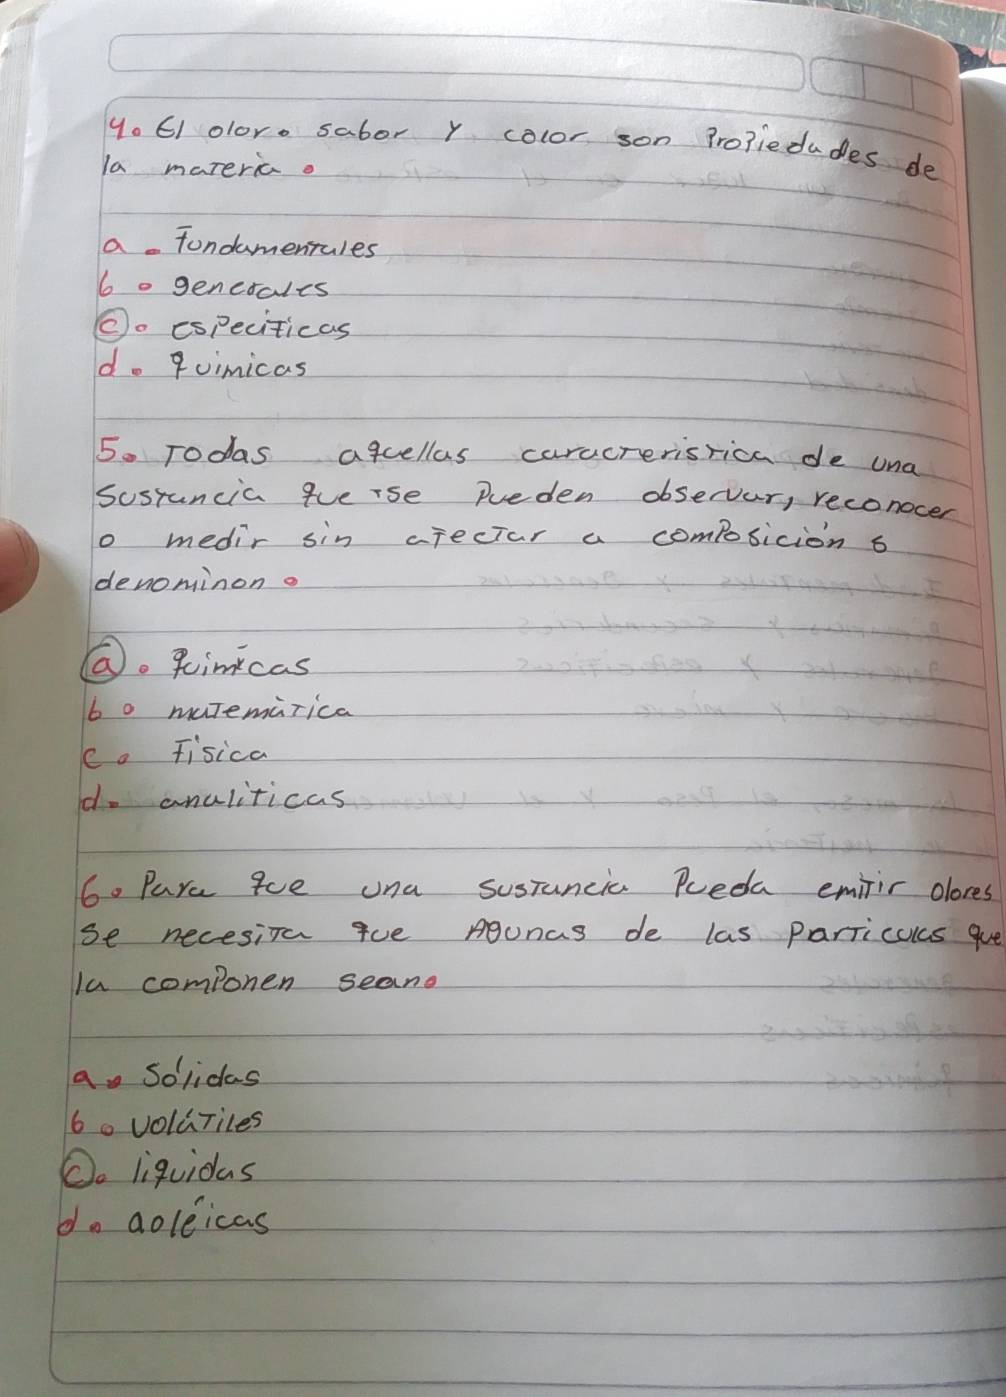 4. El olor. sabor y color son Propiedades de
la materia.
a. fundamentales
b. generales
c. especificas
d. quimicas
5. Todas aquellas caracteristica de una
Sustancia que se Pueden observar, reconocer
o medir sin afectar a composición s
denominan.
a. quimicas
b. matemática
c. física
d. analiticas
6. Para que una sustancia Pueda emitir olores
se necesita que Agunas de las particulas que
la componen sean.
a. Sólidas
b. volátiles
c. liquidas
d. aoléicas